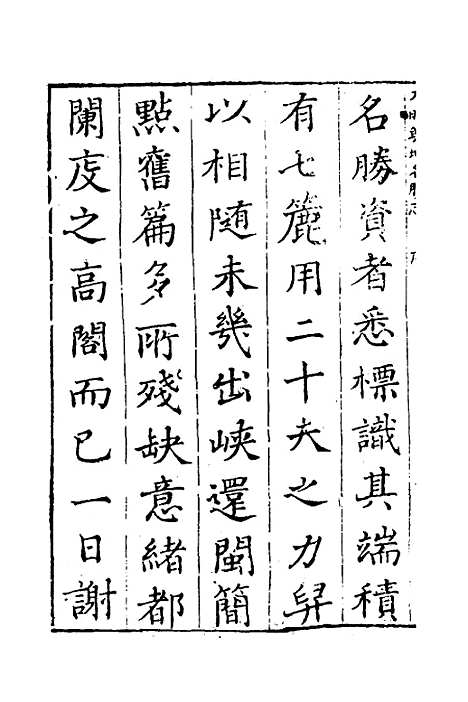 名勝資者悉標識其端積
有七簏用二十夫之力舁
以相随未㡬出峽還閩簡
點舊篇多所殘缺意緒都
闌庋之高閣而已一日謝